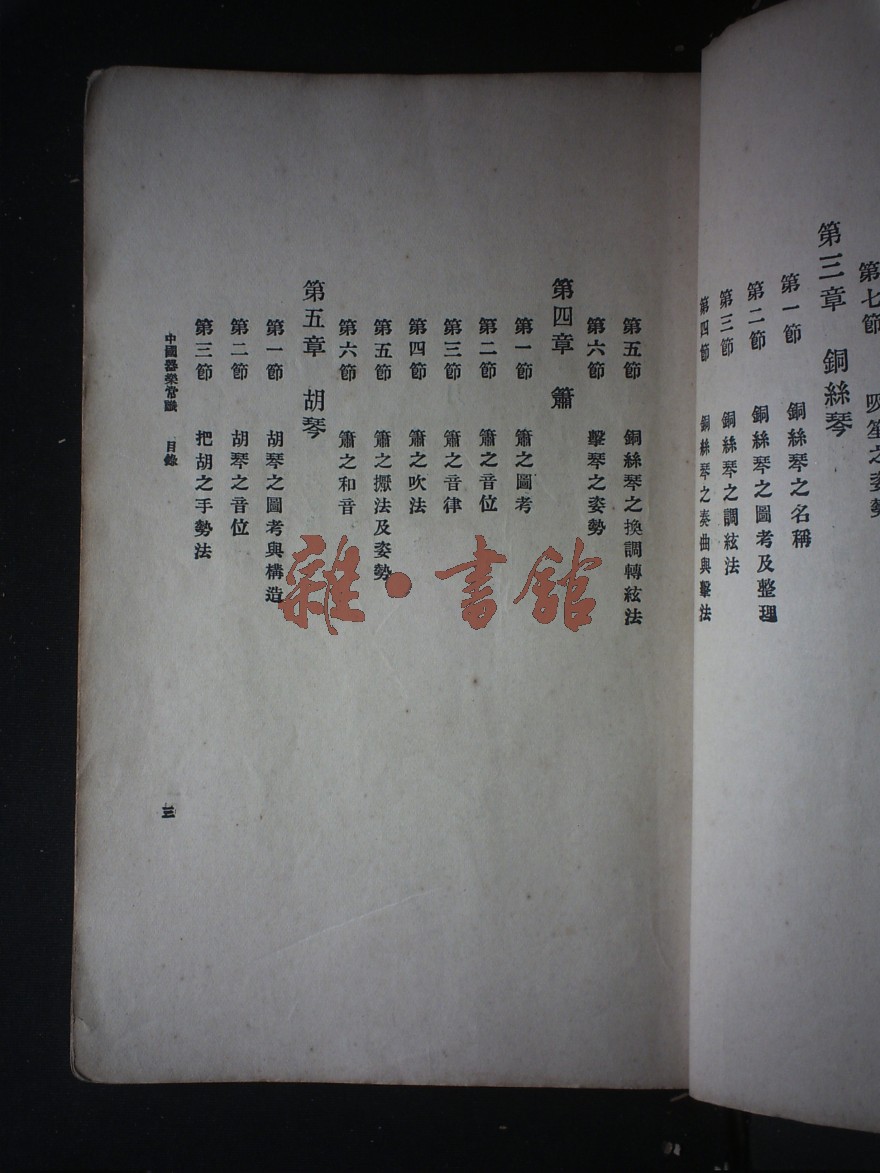 第七節　吹笙之姿勢
第三章　銅絲琴
第一節　銅絲琴之名稱
第二節　銅絲琴之圖考及整理
第三節　銅絲琴之調絃法
第四節　銅絲琴之奏曲與擊法
第五節　銅絲琴之換調轉絃法
第六節　擊琴之姿勢
第四章　簫
第一節　簫之圖考
第二節　簫之音位
第三節　簫之音律
第四節　簫之吹法
第五節　簫之擫法及姿勢
第六節　簫之和音
第五章　胡琴
第一節　胡琴之圖考與構造
第二節　胡琴之音位
第三節　把胡之手勢法
中國器樂常識　目錄
三
雜·書館